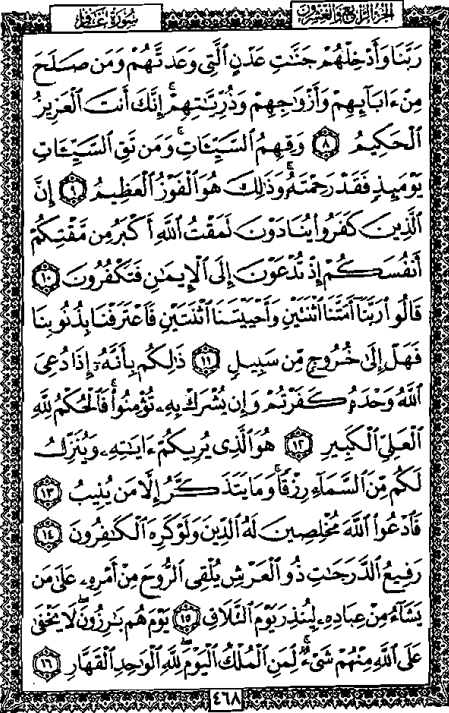 الجزء الرابع والعشرون
سورة غافر
رَبَّنَا وَأَدْخِلْهُمْ جَنَّاتِ عَدْنٍ الَّتِي وَعَدتَّهُمْ وَمَن صَلَحَ
مِنْ ءَابَآئِهِمْ وَأَزْوَاجِهِمْ وَذُرِّيَّاتِهِمْ إِنَّكَ أَنتَ الْعَزِيزُ
الْحَكِيمُ ٨ وَقِهِمُ السَّيِّئَاتِ وَمَن تَقِ السَّيِّئَاتِ
يَوْمَئِذٍ فَقَدْ رَحِمْتَهُ وَذَٰلِكَ هُوَ الْفَوْزُ الْعَظِيمُ ٩ إِنَّ
الَّذِينَ كَفَرُوا يُنَادَوْنَ لَمَقْتُ اللَّهِ أَكْبَرُ مِن مَّقْتِكُمْ
أَنفُسَكُمْ إِذْ تُدْعَوْنَ إِلَى الْإِيمَٰنِ فَتَكْفُرُونَ ١٠
قَالُوا رَبَّنَا أَمَتَّنَا اثْنَتَيْنِ وَأَحْيَيْتَنَا اثْنَتَيْنِ فَاعْتَرَفْنَا بِذُنُوبِنَا
فَهَلْ إِلَىٰ خُرُوجٍ مِّن سَبِيلٍ ١١ ذَٰلِكُم بِأَنَّهُ إِذَا دُعِيَ
اللَّهُ وَحْدَهُ كَفَرْتُمْ وَإِن يُشْرَكْ بِهِ تُؤْمِنُوا فَالْحُكْمُ لِلَّهِ
الْعَلِيِّ الْكَبِيرِ ١٢ هُوَ الَّذِي يُرِيكُمْ ءَايَاتِهِ وَيُنَزِّلُ
لَكُم مِّنَ السَّمَآءِ رِزْقًا وَمَا يَتَذَكَّرُ إِلَّا مَن يُنِيبُ ١٣
فَادْعُوا اللَّهَ مُخْلِصِينَ لَهُ الدِّينَ وَلَوْ كَرِهَ الْكَٰفِرُونَ ١٤
رَفِيعُ الدَّرَجَاتِ ذُو الْعَرْشِ يُلْقِي الرُّوحَ مِنْ أَمْرِهِ عَلَىٰ مَن
يَشَآءُ مِنْ عِبَادِهِ لِيُنذِرَ يَوْمَ التَّلَاقِ ١٥ يَوْمَ هُم بَٰرِزُونَ لَا يَخْفَىٰ
عَلَى اللَّهِ مِنْهُمْ شَيْءٌ لِّمَنِ الْمُلْكُ الْيَوْمَ لِلَّهِ الْوَٰحِدِ الْقَهَّارِ ١٦
٤٦٨